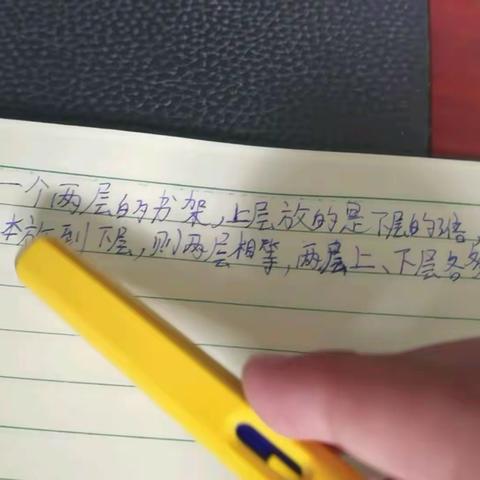 一个两层的书架,上层放的是下层的3倍,
本放到下层,则两层相等,两层上、下层各多